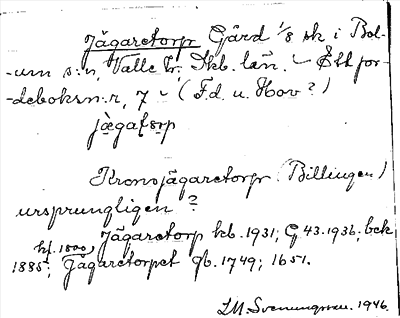 Jägaretorp Gård 1/8 sk i Bol-
-um s:n, Valle hr. Skb. län. - Ett jor-
-deboksn:r, 7 - (F.d. u. Hov?)
jägatorp
Kronojägaretorp (Billingen)
ursprungligen?
Jägaretorp kb. 1931; G 43. 1936; bek
hf. 1800,
1885; Jägaretorpet Gb. 1749; 1651.
1946.